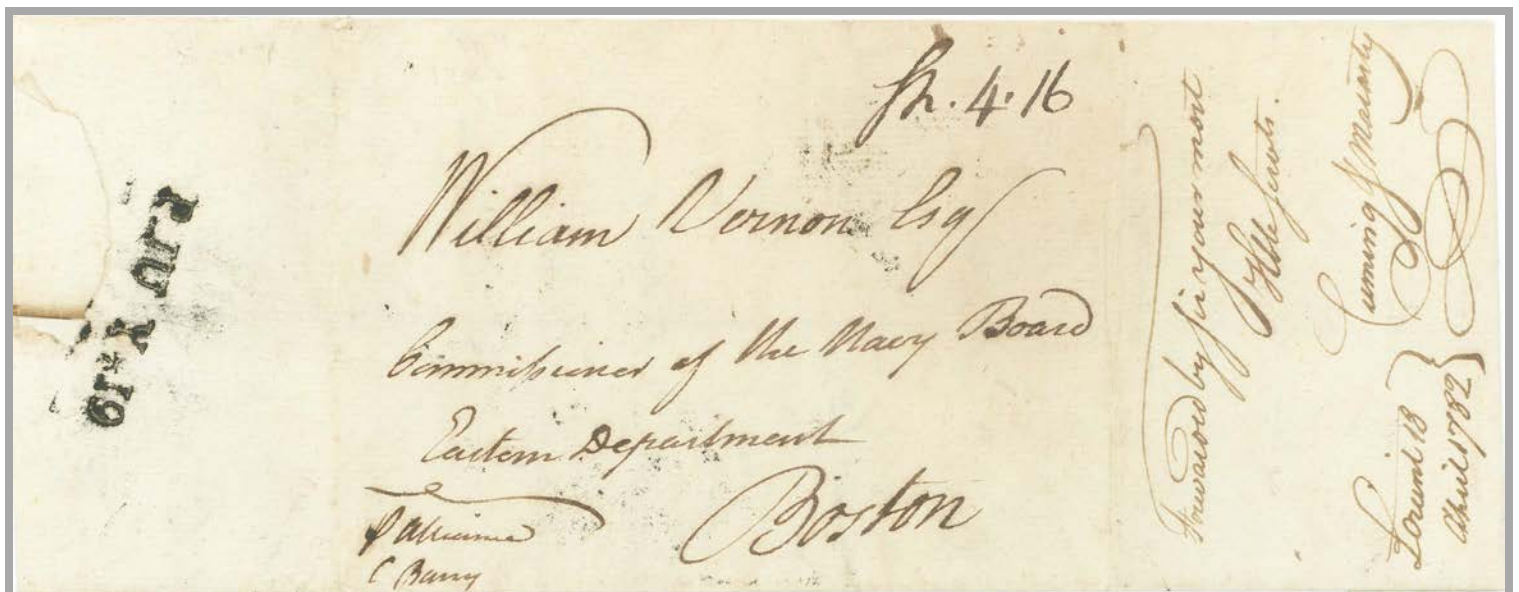 Sh. 4.16
William Vernon Esq
Commissioner of the Navy Board
Eastern Department
Boston
P Alliance
C Barry
Forwarded by Sir your most
Hble Servts.
Cuming & Macarty
Lorient 18
April 1782